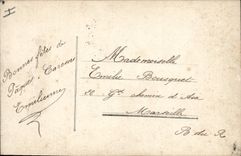 Bonnes fêtes de
Pâques
Emilienne
Mademoiselle
Emilie Bousquet
Gd chemin d'Aix
Marseille
B du R